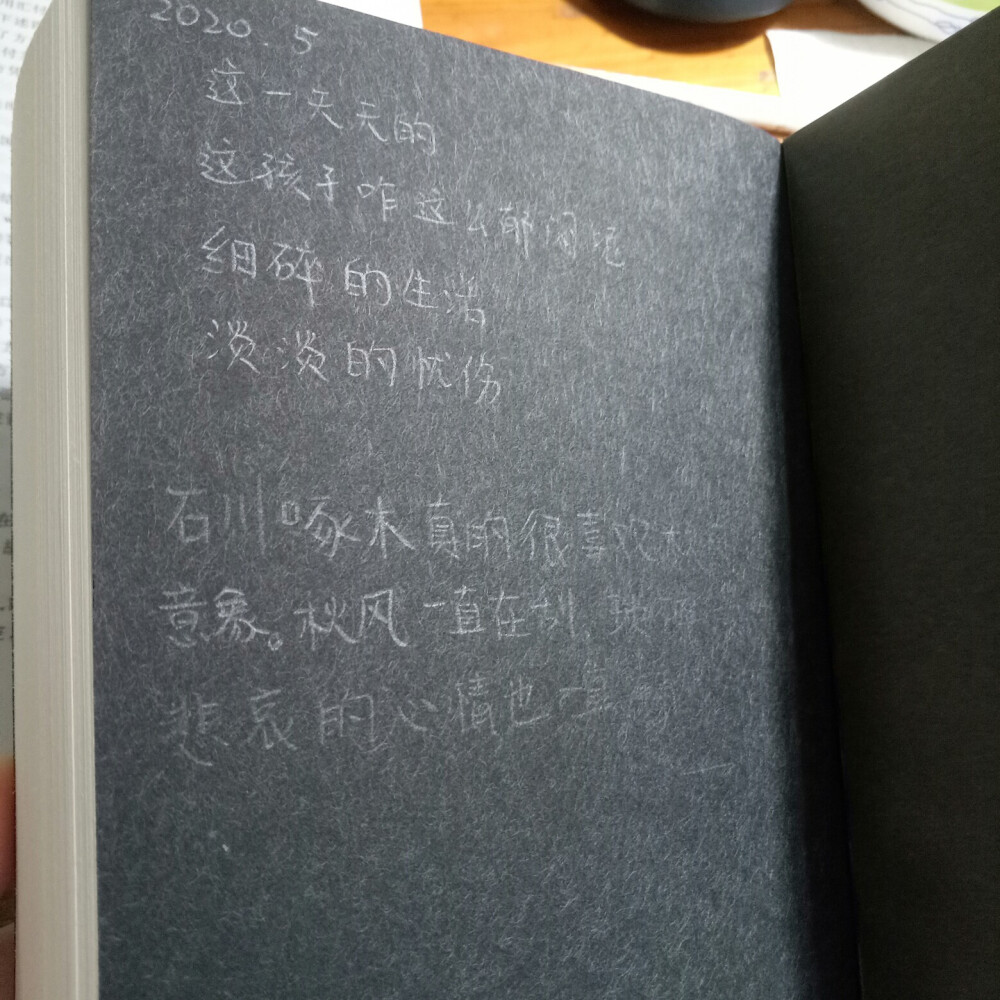 2020.5
这一天天的
这孩子咋这么郁闷呢
细碎的生活
淡淡的忧伤
石川啄木真的很喜欢
意象。秋风一直在
悲哀的心情也一直